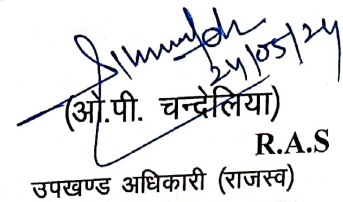 24/05/24
(ओ.पी. चन्देलिया)
R.A.S
उपखण्ड अधिकारी (राजस्व)